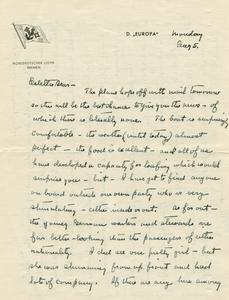 D. „EUROPA"
Monday
Aug 5.
NORDDEUTSCHER LLOYD
BREMEN
The plane hops off with mail tomorrow
so this will be the best chance to give you the news - of
which there is literally none. The boat is supremely
comfortable - the weather (until today) almost
perfect - the food is excellent - and all of us
have developed a capacity for loafing which would
surprise you - but - I have yet to find anyone
on board outside our own party who is very
stimulating - either inside or out. As for out -
the young German waiters and stewards are
far better-looking than the passengers of either
nationality. I did see one pretty girl - but
she was shimmering from up front and had
lots of company. If there are any here among